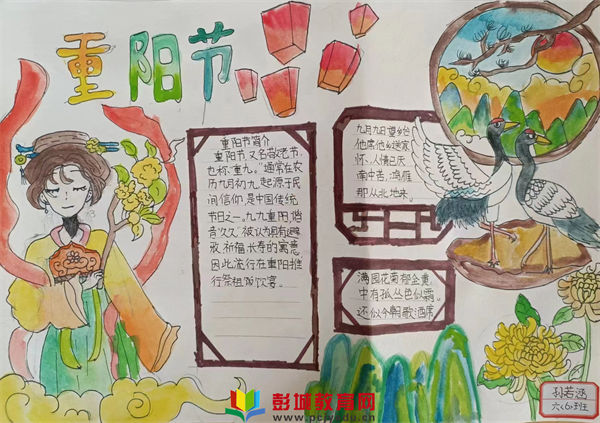 重阳节
重阳节简介
重阳节,又名敬老节,
也称"重九。"通常在农
历九月初九,起源于民
间信仰,是中国传统
节日之一。九九重阳,谐
音"久久",被认为具有避
秽、祈福、长寿的寓意,
因此流行在重阳推
行祭祖饭饮宴。
九月九日望乡台
他席他乡送客
杯。人情已厌
南中苦,鸿雁
那从北地来。
满园花菊郁金黄,
中有孤丛色似霜。
还似今朝歌酒席
孙若涵
六(6)班
彭城教育网
www.pcjyedu.cn